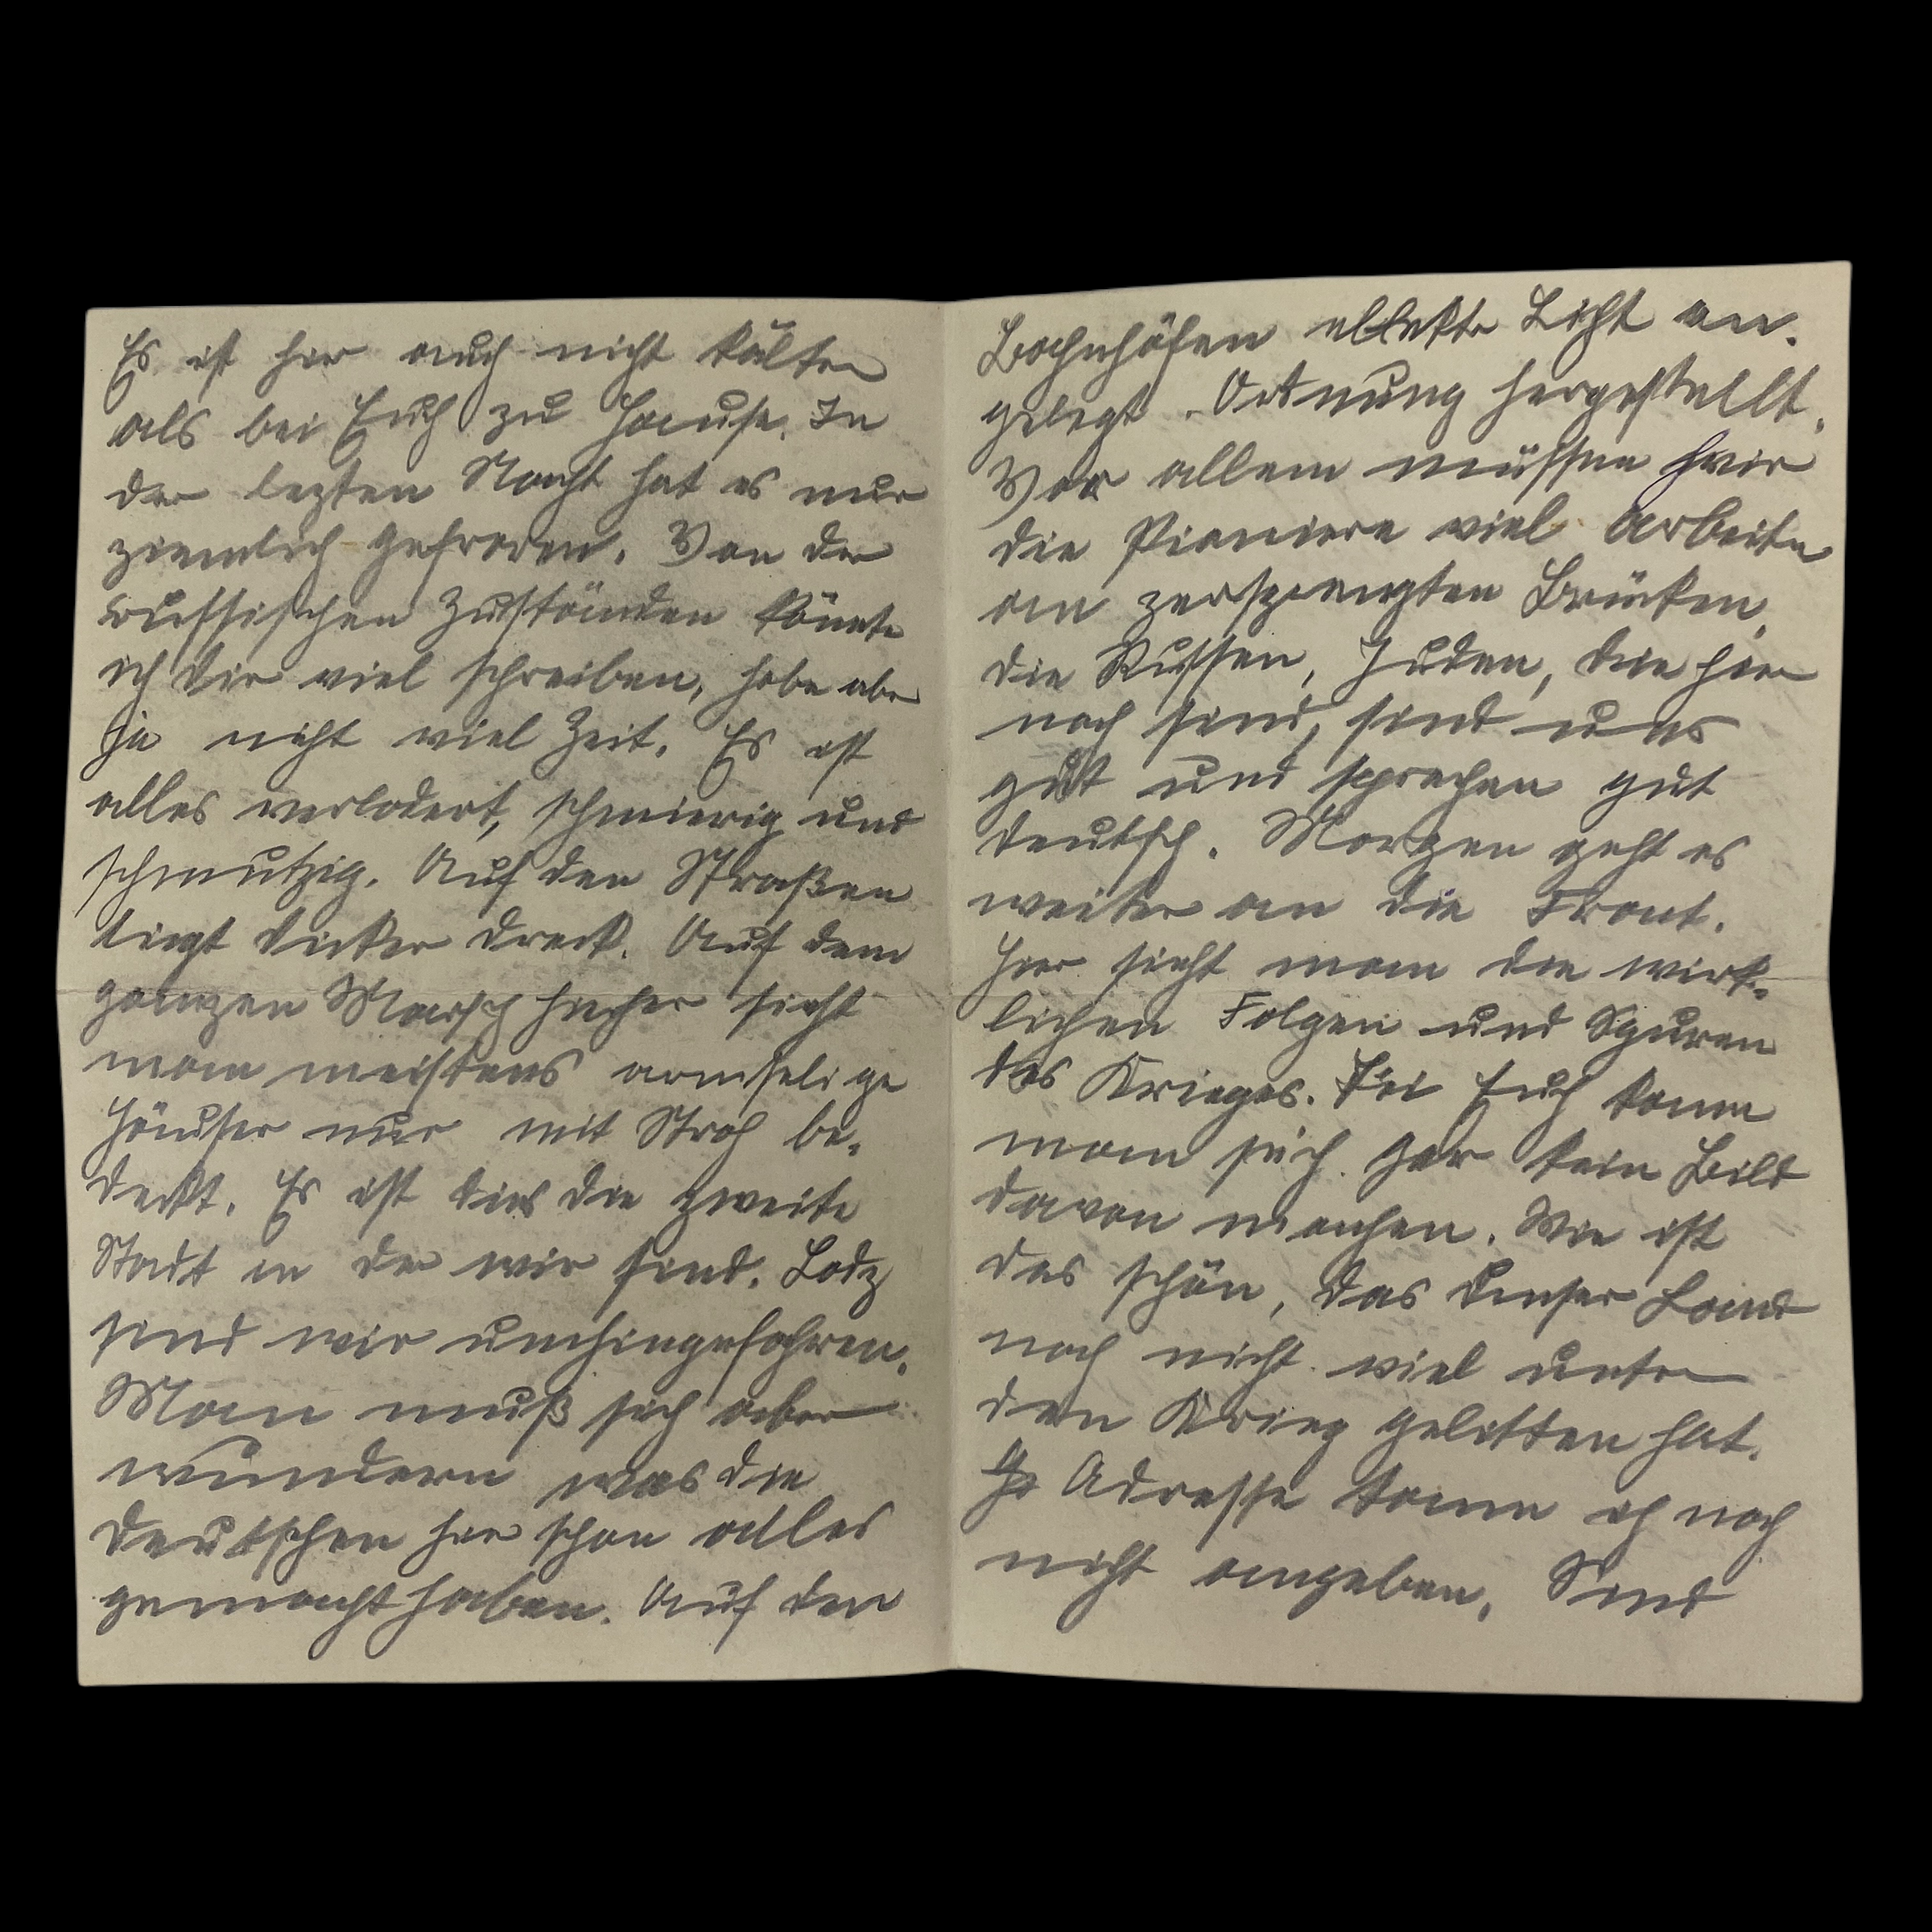 Es ist hier auch nicht kälter
als bei Euch zu Hause. In
der lezten Nacht hat es nur
ziemlich gefroren. Von den
russischen Zuständen könnte
ich dir viel schreiben, habe aber
ja nicht viel Zeit. Es ist
alles verlodert, schmierig und
schmutzig. Auf den Straßen
liegt dicker Dreck. Auf dem
ganzen Marsch hieher sieht
man meistens armselige
Häuser nur mit Stroh be-
deckt. Es ist dies die zweite
Stadt in der wir sind. Lodz
sind wir umhingefahren.
Man muß sich aber
wundern was die
Deutschen hier schon alles
gemacht haben. Auf den
Bahnhöfen Licht an-
gelegt. Ordnung hergestellt.
Vor allem müssen wir
die Pioniere viel Arbeiten
an zersprengten Brücken.
die Russen, Juden, die hier
noch sind, sind uns
gut und sprechen gut
deutsch. Morgen geht es
weiter an die Front.
Hier sieht man die wirk-
lichen Folgen und Spuren
des Krieges. Bei Euch kann
man sich gar kein Bild
davon machen. Wie ist
das schön, das unser Land
noch nicht viel unter
den Krieg gelitten hat.
Adresse kann ich noch
nicht angeben. Sind